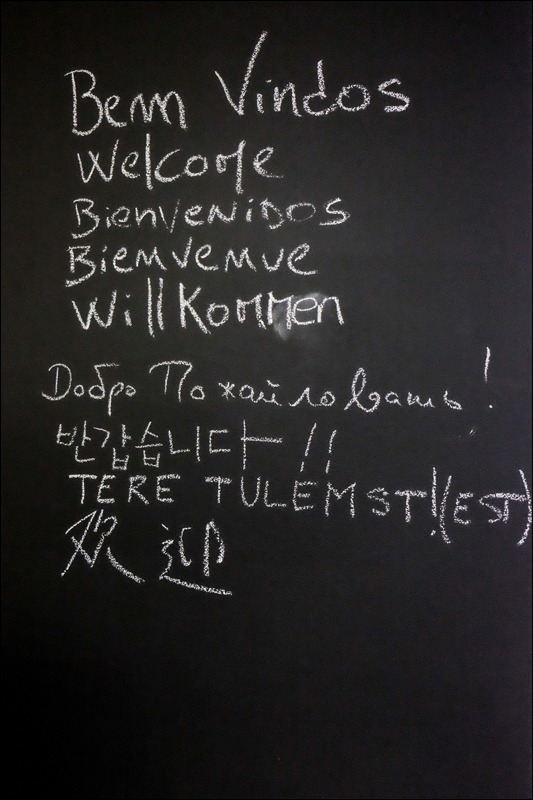 Bem Vindos
Welcome
Bienvenidos
Biemvemue
Willkommen
Добро Пожайловать!
반갑습니다!!
TERE TULEMST!(EST)
欢迎